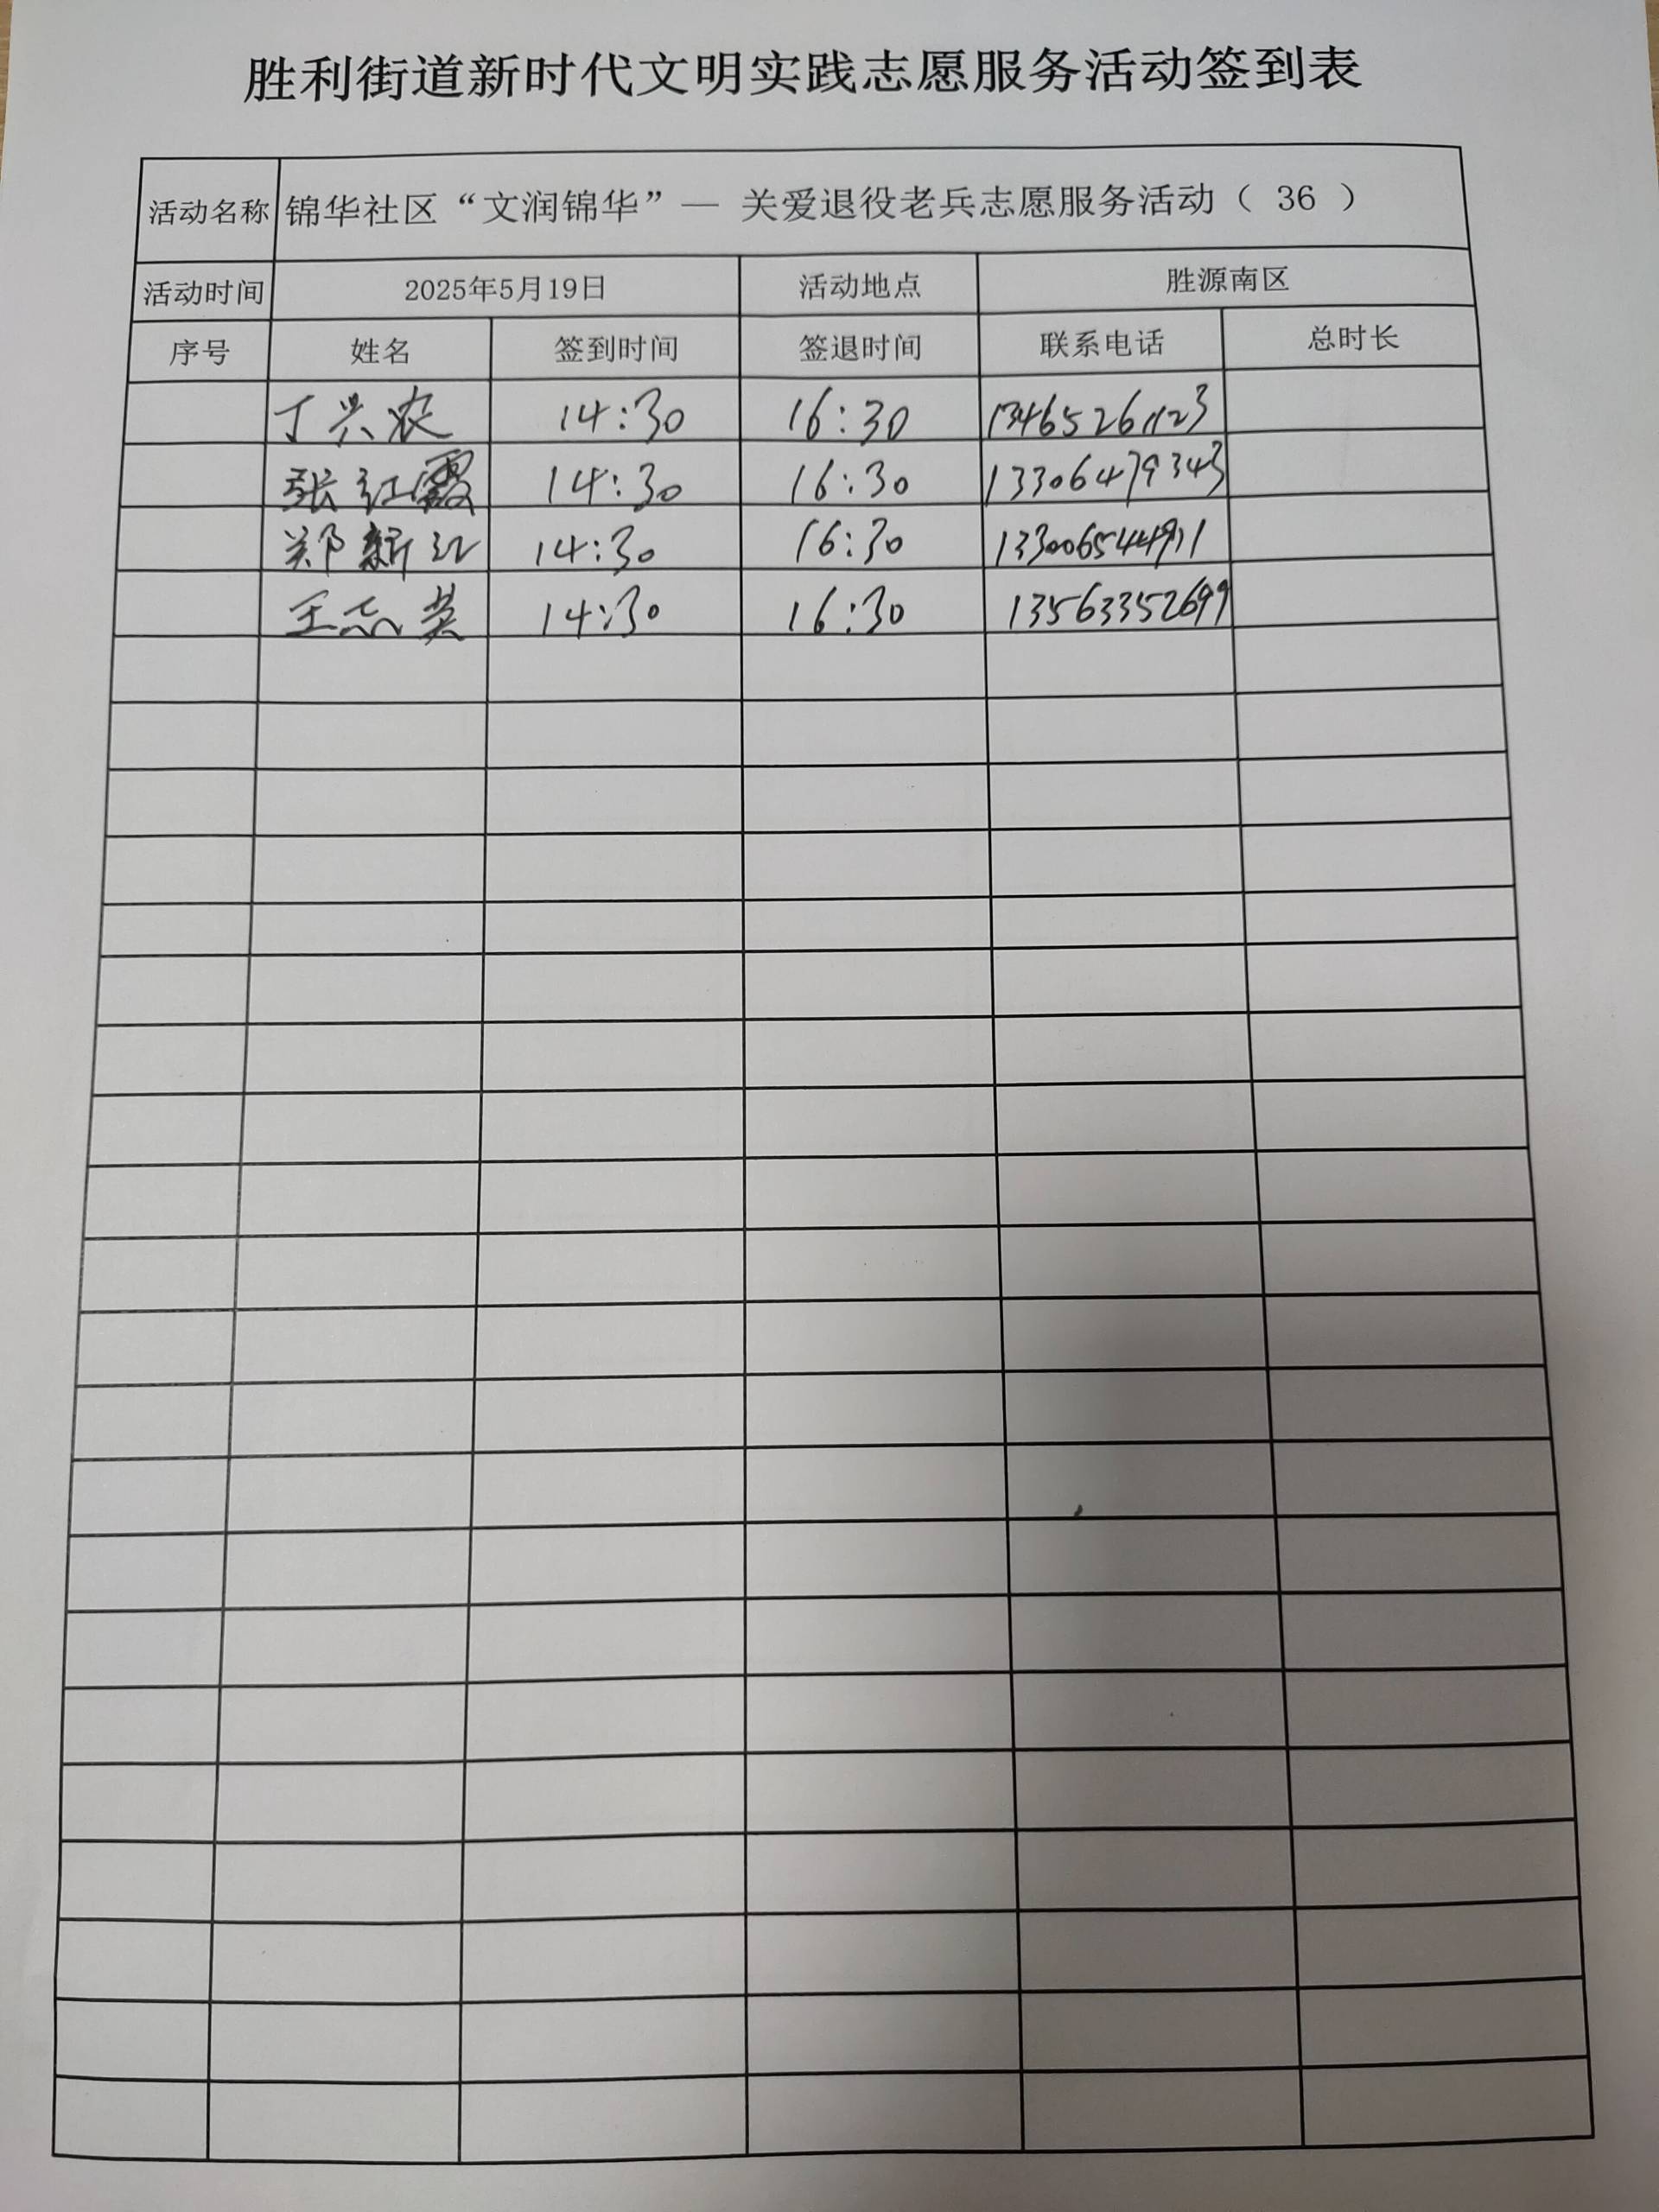 胜利街道新时代文明实践志愿服务活动签到表
活动名称 锦华社区“文润锦华”— 关爱退役老兵志愿服务活动（ 36 ）
活动时间 2025年5月19日 活动地点 胜源南区
序号 姓名 签到时间 签退时间 联系电话 总时长
丁兴农 14:30 16:30 13465261123
张红霞 14:30 16:30 13306479343
郑新江 14:30 16:30
王志英 14:30 16:30 13563352699